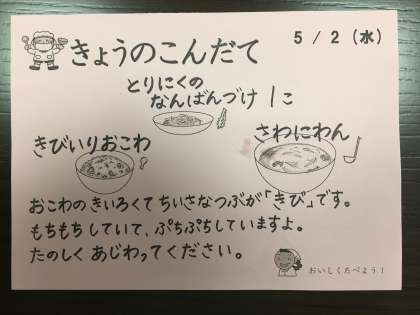 きょうのこんだて
5/2(水)
とりにくの
なんばんづけ 1こ
きびいりおこわ
さわにわん
おこわのきいろくてちいさなつぶが「きび」です。
もちもちしていて、ぷちぷちしていますよ。
たのしくあじわってください。
おいしくたべよう!